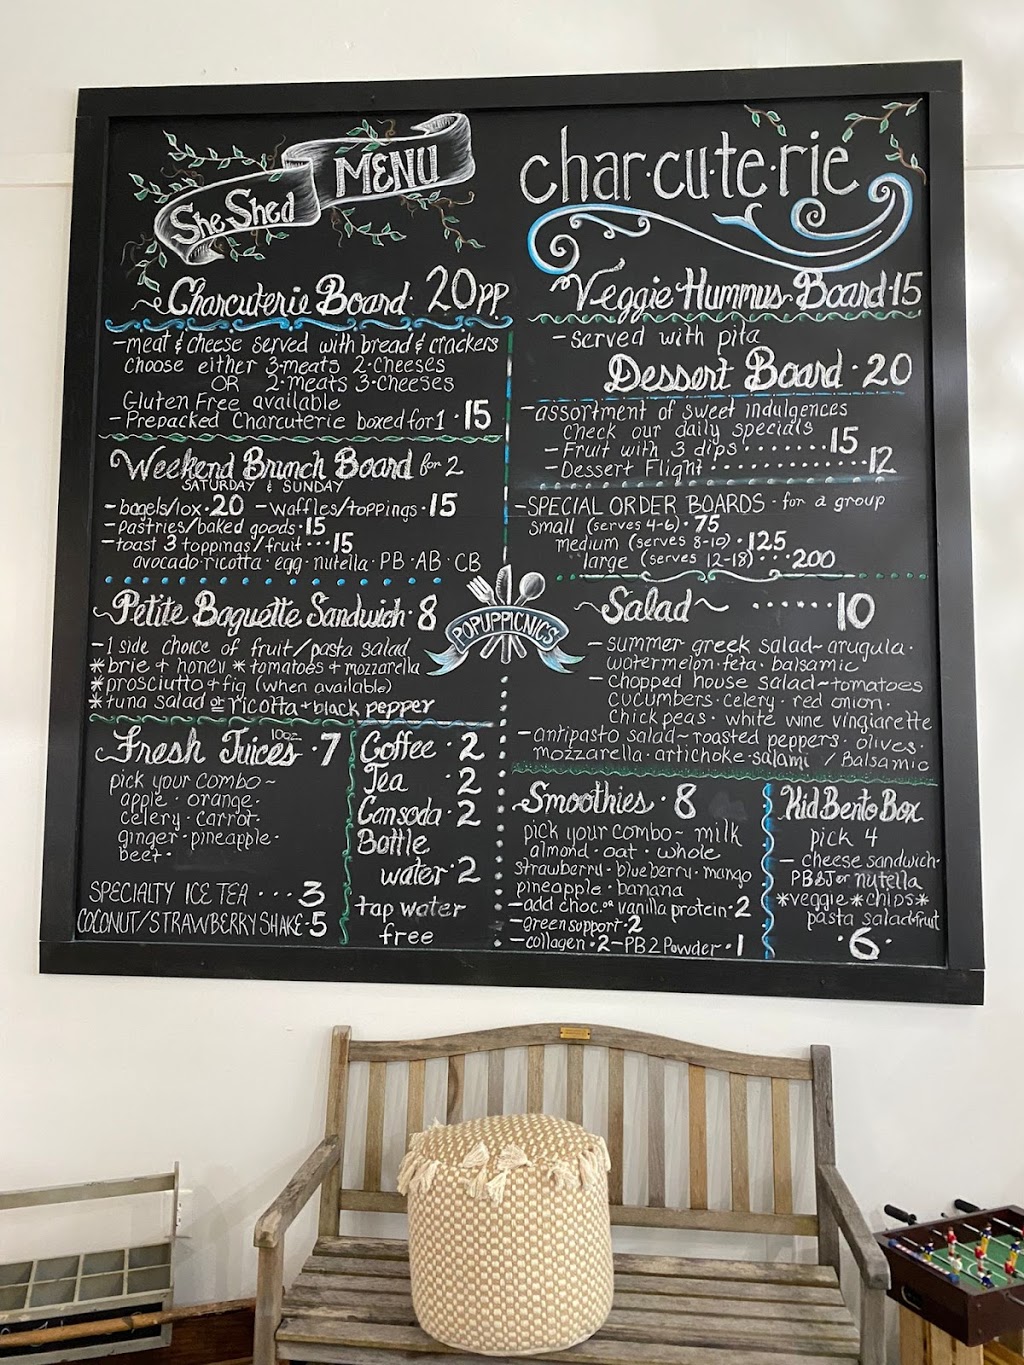 She Shed MENU
char·cu·te·rie
Charcuterie Board · 20pp
-meat & cheese served with bread & crackers
choose either 3·meats 2·cheeses
OR 2·meats 3·cheeses
Gluten Free available
- Prepacked Charcuterie boxed for 1 · 15
Weekend Brunch Board for 2
SATURDAY & SUNDAY
- bagels/lox · 20 - waffles/toppings · 15
- pastries/baked goods · 15
- toast 3 toppings/fruit ··· 15
avocado · ricotta · egg · nutella · PB · AB · CB
Petite Baguette Sandwich · 8
- 1 side choice of fruit/pasta salad
* brie + honey * tomatoes + mozzarella
* prosciutto + fig (when available)
* tuna salad or ricotta + black pepper
Fresh Juices 10oz · 7
pick your combo~
apple · orange ·
celery · carrot ·
ginger · pineapple ·
beet ·
SPECIALTY ICE TEA ··· 3
COCONUT/STRAWBERRY SHAKE · 5
Coffee · 2
Tea · 2
Can soda · 2
Bottle
water · 2
tap water
free
POPUPPICNICS
Veggie Hummus Board · 15
- served with pita
Dessert Board · 20
- assortment of sweet indulgences
check our daily specials
- Fruit with 3 dips ······· 15
- Dessert Flight ············ 12
- SPECIAL ORDER BOARDS · for a group
small (serves 4-6) · 75
medium (serves 8-10) · 125
large (serves 12-18) ··· 200
~Salad~ ······ 10
- summer greek salad~ arugula ·
watermelon · feta · balsamic
- chopped house salad ~ tomatoes
cucumbers · celery · red onion ·
chick peas · white wine vingiarette
- antipasto salad ~ roasted peppers · olives ·
mozzarella · artichoke · salami / Balsamic
Smoothies · 8
pick your combo~ milk
almond · oat · whole
strawberry · blueberry · mango
pineapple · banana
- add choc. or vanilla protein · 2
- green support · 2
- collagen · 2 - PB2 Powder · 1
Kid Bento Box
pick 4
- cheese sandwich ·
PB&J or nutella
*veggie *chips*
pasta salad + fruit
· 6 ·